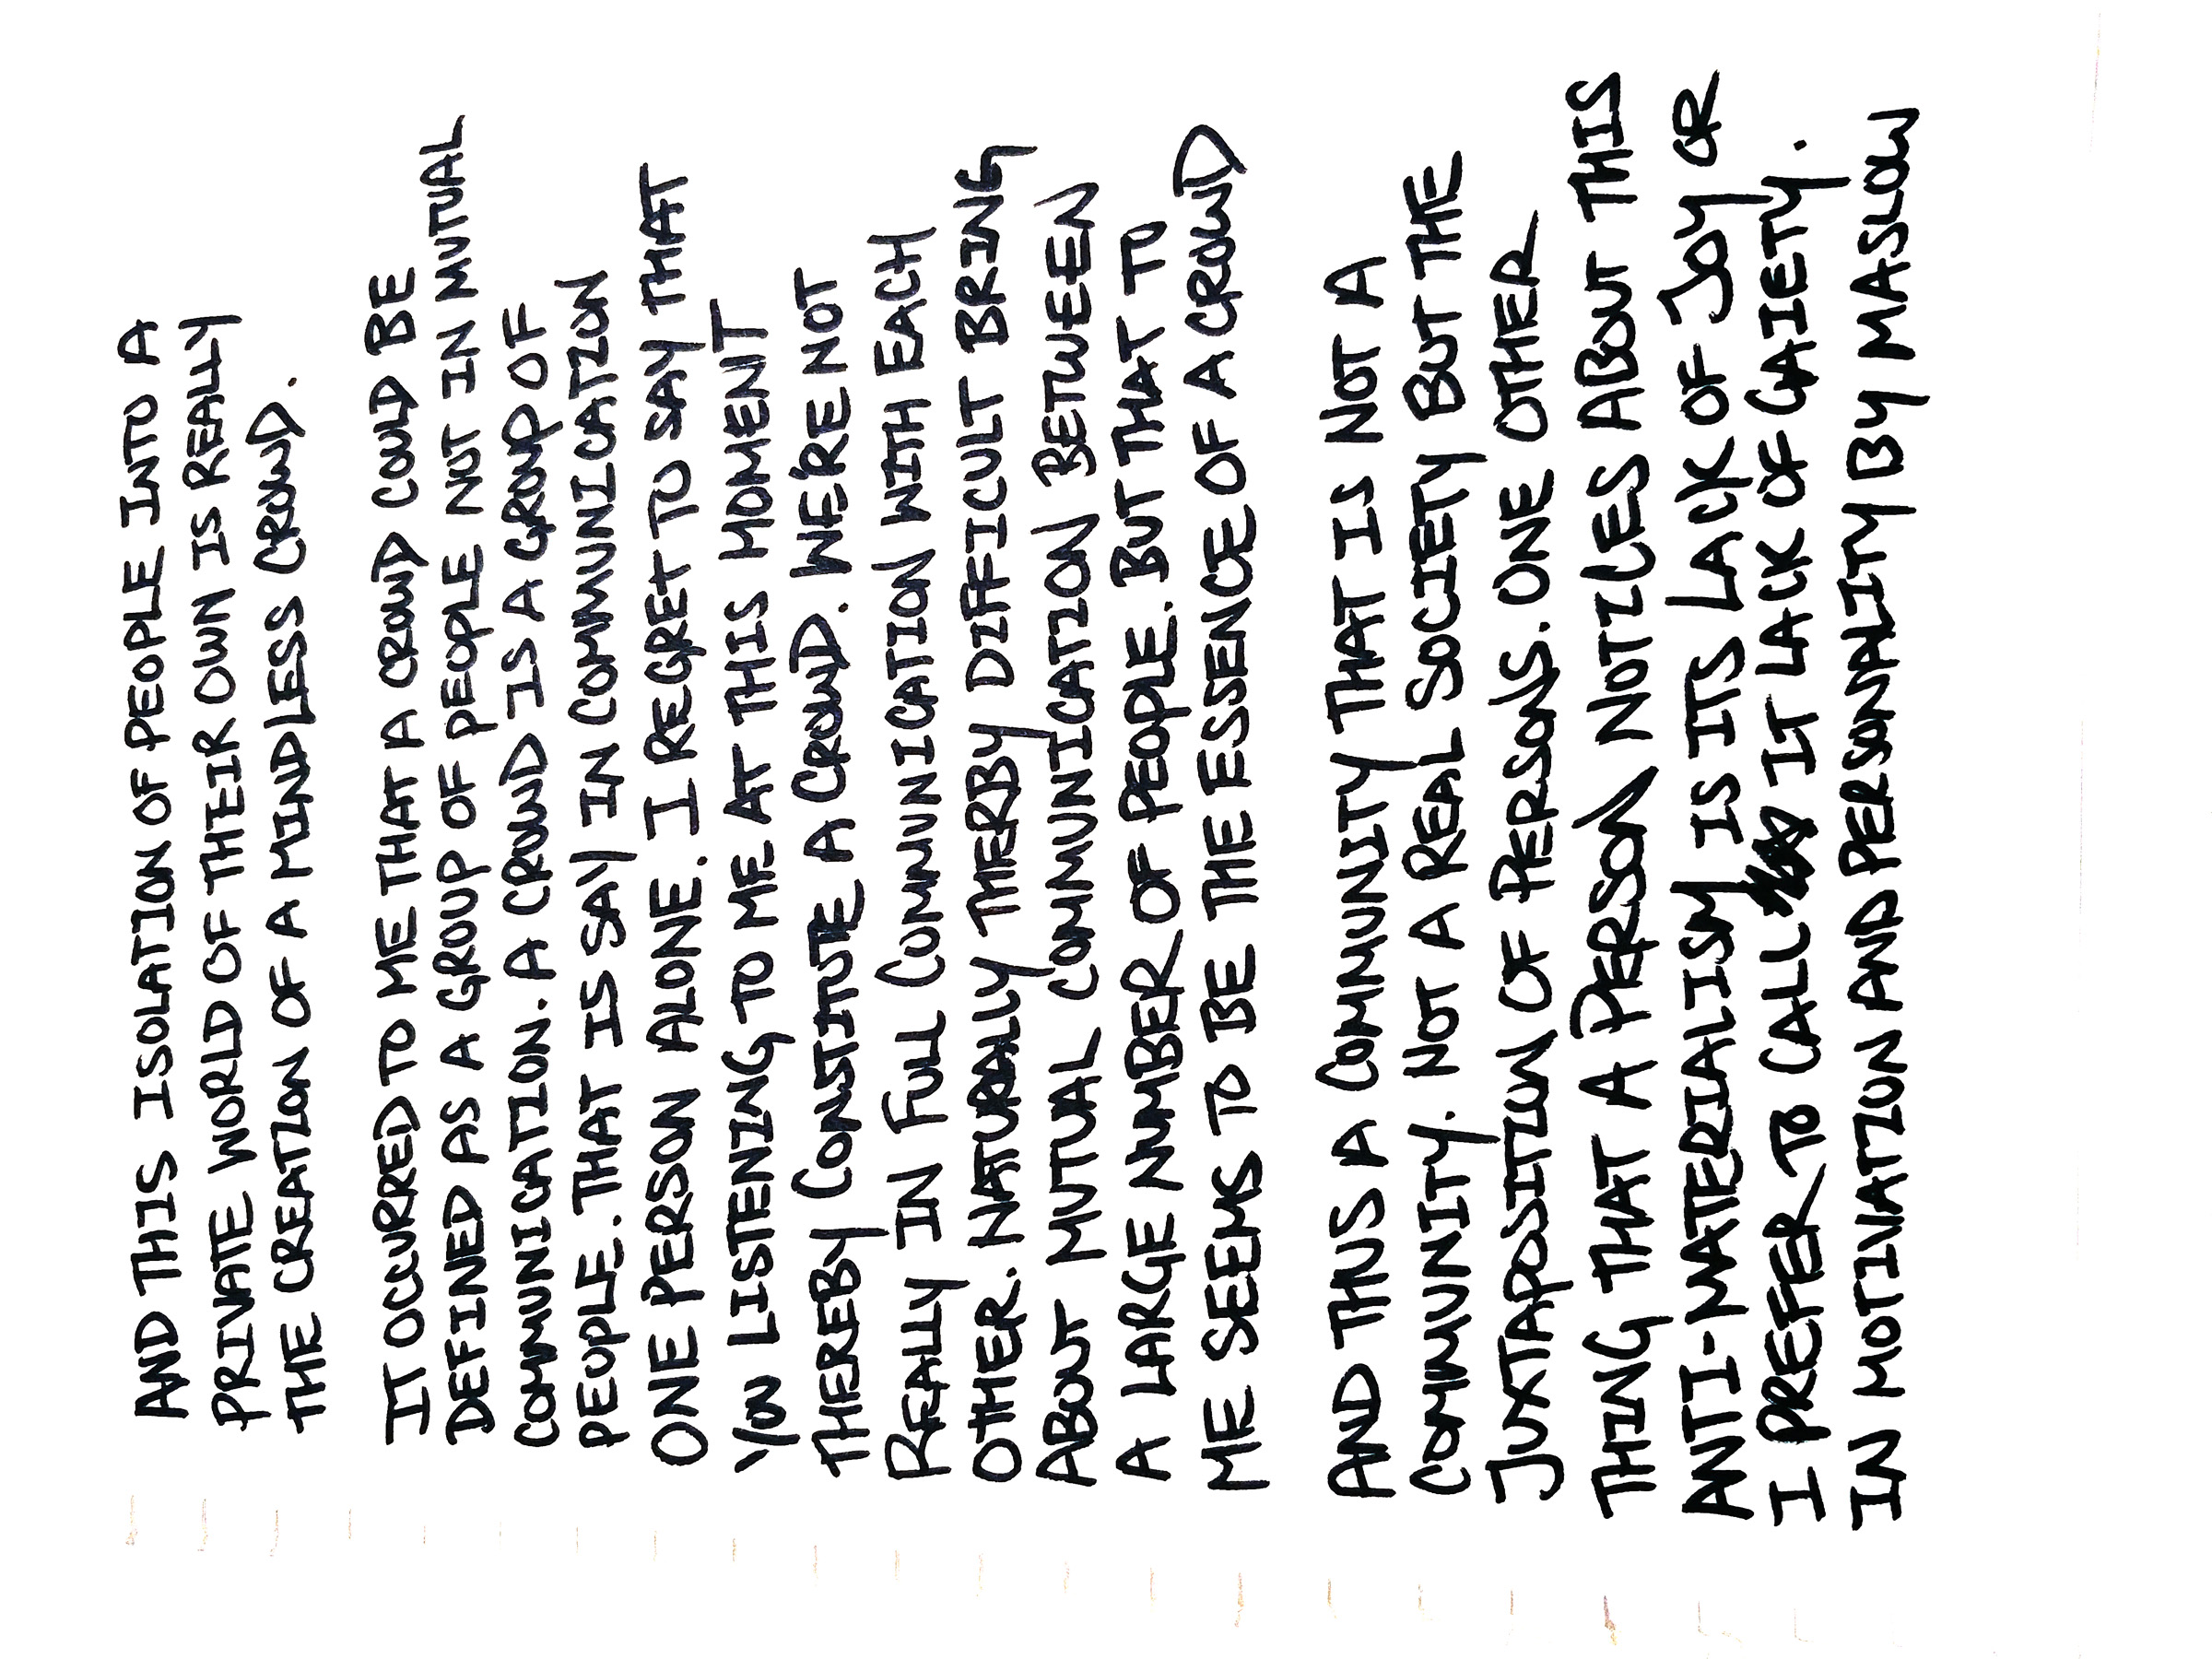 AND THIS ISOLATION OF PEOPLE INTO A
PRIVATE WORLD OF THEIR OWN IS REALLY
THE CREATION OF A MINDLESS CROWD.
IT OCCURRED TO ME THAT A CROWD COULD BE
DEFINED AS A GROUP OF PEOPLE NOT IN MUTUAL
COMMUNICATION. A CROWD IS A GROUP OF
PEOPLE. THAT IS SAY IN COMMUNICATION
ONE PERSON ALONE. I REGRET TO SAY THAT
YOU LISTENING TO ME AT THIS MOMENT
THEREBY CONSTITUTE A CROWD. WE'RE NOT
REALLY IN FULL COMMUNICATION WITH EACH
OTHER. NATURALLY THERBY DIFFICULT BRING
ABOUT MUTUAL COMMUNICATION BETWEEN
A LARGE NUMBER OF PEOPLE. BUT THAT TO
ME SEEMS TO BE THE ESSENCE OF A CROWD
AND THUS A COMMUNITY THAT IS NOT A
COMMUNITY. NOT A REAL SOCIETY BUT THE
JUXTAPOSITION OF PERSONS. ONE OTHER
THING THAT A PERSON NOTICES ABOUT THIS
ANTI-MATERIALISM IS ITS LACK OF JOY OR
I PREFER TO CALL IT LACK OF GAIETY.
IN MOTIVATION AND PERSONALITY BY MASLOW